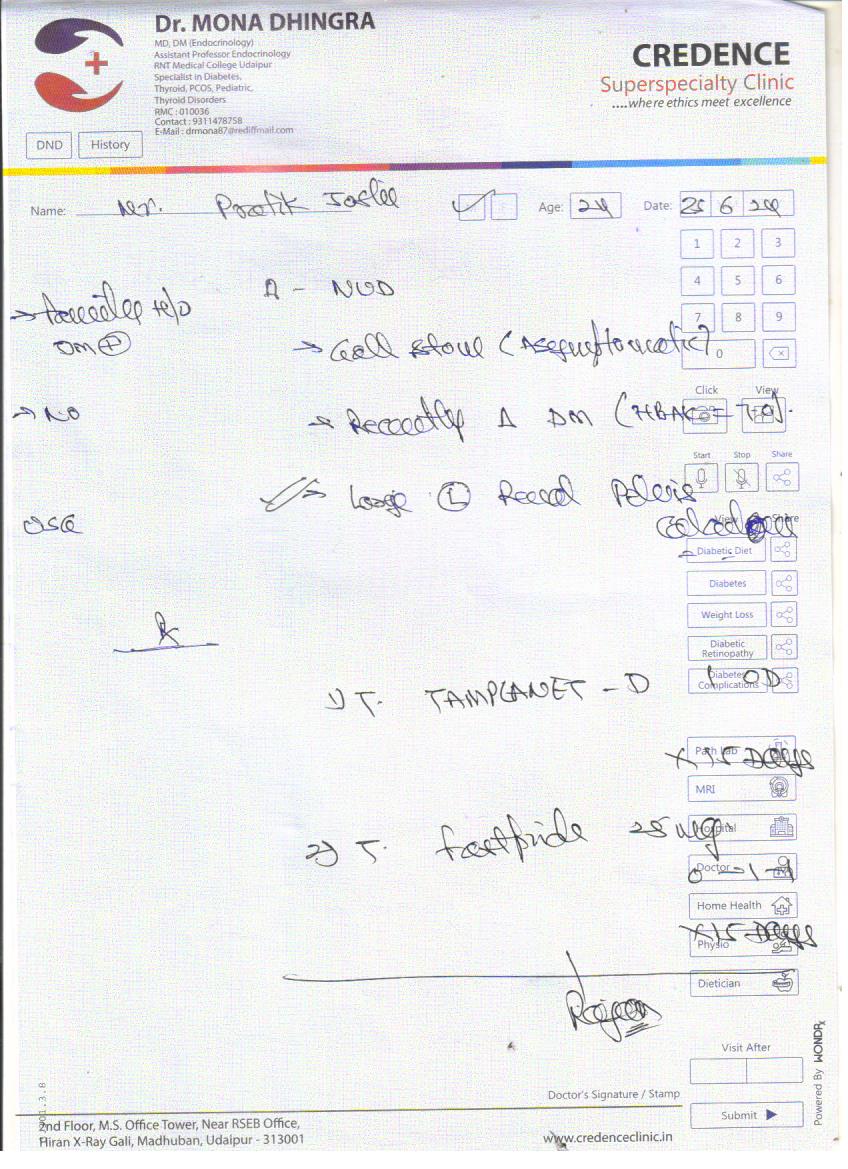 Dr. MONA DHINGRA
MD, DM (Endocrinology)
Assistant Professor Endocrinology
RNT Medical College Udaipur
Specialist in Diabetes,
Thyroid, PCOS, Pediatric,
Thyroid Disorders
RMC : 010036
Contact : 9311478758
E-Mail : drmona87@rediffmail.com
CREDENCE
Superspecialty Clinic
....where ethics meet excellence
DND History
Name: Mr. Age: 24 Date: 25 6 24
1 2 3
4 5 6
7 8 9
0
H/o
DM +
Δ - NUD
→ Gall stone (Asymptomatic)
→ No
→ Recently Δ DM ( = 7.0).
→ Large L Renal Pelvis
Click View
Start Stop Share
View Share
USG
Diabetic Diet
Diabetes
Weight Loss
Diabetic
Retinopathy
Diabetes
Complications
Rx
1) T. TAMPLANET - D 1 OD
x 15 Days
Path Lab
MRI
Hospital
2) T. 25 mg
0 - 1 - 1
Doctor
Home Health
x 15 Days
Physio
Dietician
Visit After
Doctor's Signature / Stamp
Submit
Powered By WONDRx
2nd Floor, M.S. Office Tower, Near RSEB Office,
Hiran X-Ray Gali, Madhuban, Udaipur - 313001
www.credenceclinic.in